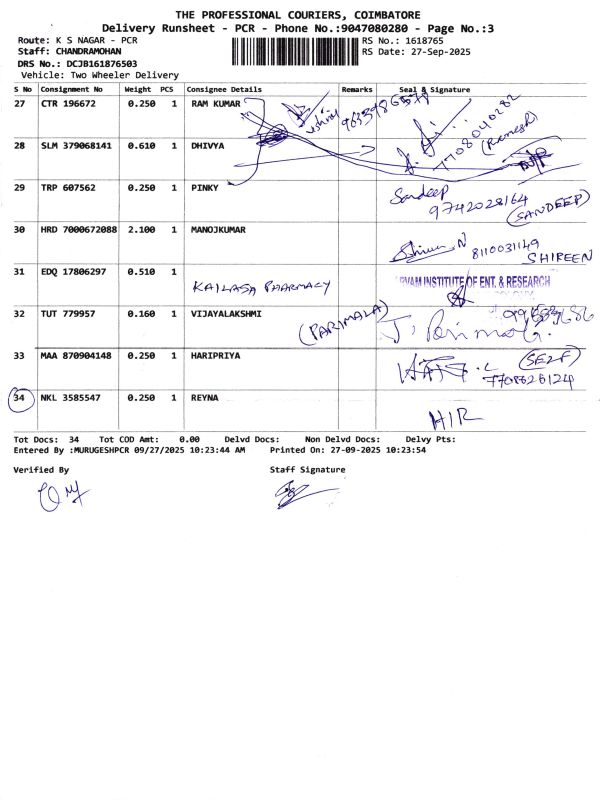 THE PROFESSIONAL COURIERS, COIMBATORE
Delivery Runsheet - PCR - Phone No.:9047080280 - Page No.:3
Route: K S NAGAR - PCR RS No.: 1618765
Staff: CHANDRAMOHAN RS Date: 27-Sep-2025
DRS No.: DCJB161876503
Vehicle: Two Wheeler Delivery
S No Consignment No Weight PCS Consignee Details Remarks Seal & Signature
27 CTR 196672 0.250 1 RAM KUMAR
7708040282
(Ramesh)
28 SLM 379068141 0.610 1 DHIVYA
29 TRP 607562 0.250 1 PINKY Sandeep
9742028164
(SANDEEP)
30 HRD 7000672088 2.100 1 MANOJKUMAR
8110031149
SHIREEN
31 EDQ 17806297 0.510 1 KAILASA PHARMACY
INSTITUTE OF ENT. & RESEARCH
32 TUT 779957 0.160 1 VIJAYALAKSHMI (PARIMALA)
33 MAA 870904148 0.250 1 HARIPRIYA (SELF)
7708826124
34 NKL 3585547 0.250 1 REYNA
H/R
Tot Docs: 34 Tot COD Amt: 0.00 Delvd Docs: Non Delvd Docs: Delvy Pts:
Entered By :MURUGESHPCR 09/27/2025 10:23:44 AM Printed On: 27-09-2025 10:23:54
Verified By Staff Signature